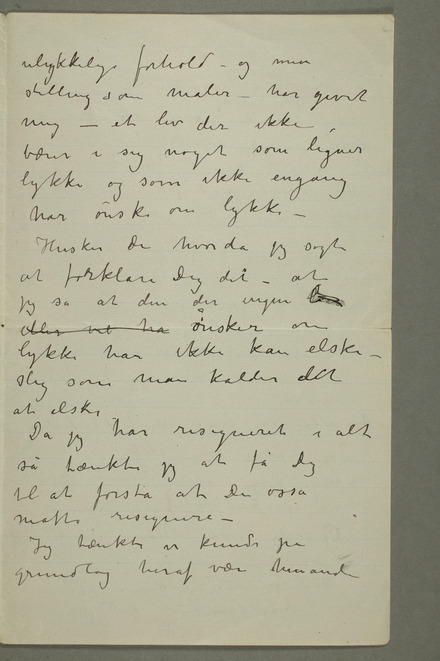 ulykkelige forhold – og min
stilling som maler – har givet
mig – et liv der ikke
bærer i sig noget som ligner
lykke og som ikke engang
har ønske om lykke –
Husker Du hvorda jeg søgte
at forklare Dig det – at
jeg sa at den der ingen
eller vil ha ønsker om
lykke har ikke kan elske –
slig som man kalder det
at elske
Da jeg har resigneret i alt
så tænkte jeg at få Dig
til at forstå at Du også
måtte resignere –
Jeg tænkte vi kunde på
grundlag heraf være hinande